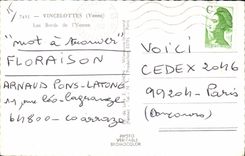 7411 - VINCELOTTES (Yonne)
Les Bords de l'Yonne
"mot à trouver"
FLORAISON
ARNAUD PONS-LATONG
11 rue léo-lagrange
64800 - coarraze
VOICI
CEDEX 2046
99204 - Paris
(Concours)
VERITABLE
BROMOCOLOR